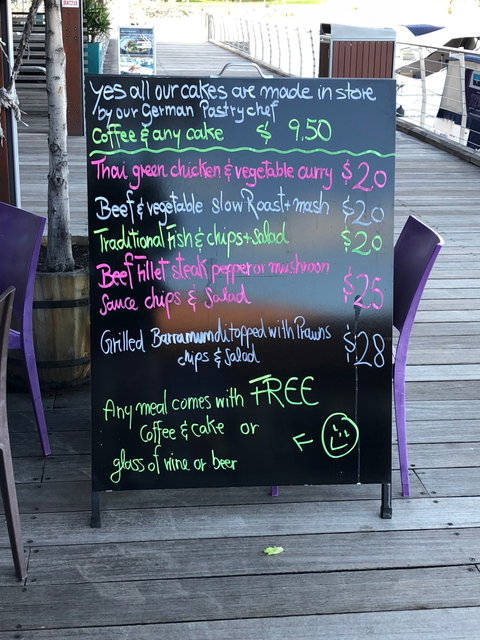 Yes all our cakes are made in store
by our German Pastry chef
Coffee & any cake $ 9.50
Thai green chicken & vegetable curry $20
Beef & vegetable slow Roast + mash $20
Traditional Fish & chips + Salad $20
Beef Fillet steak pepper or mushroon
Sauce chips & Salad $25
Grilled Barramundi topped with Prawns
chips & Salad $28
Any meal comes with FREE
Coffee & Cake or
glass of wine or beer